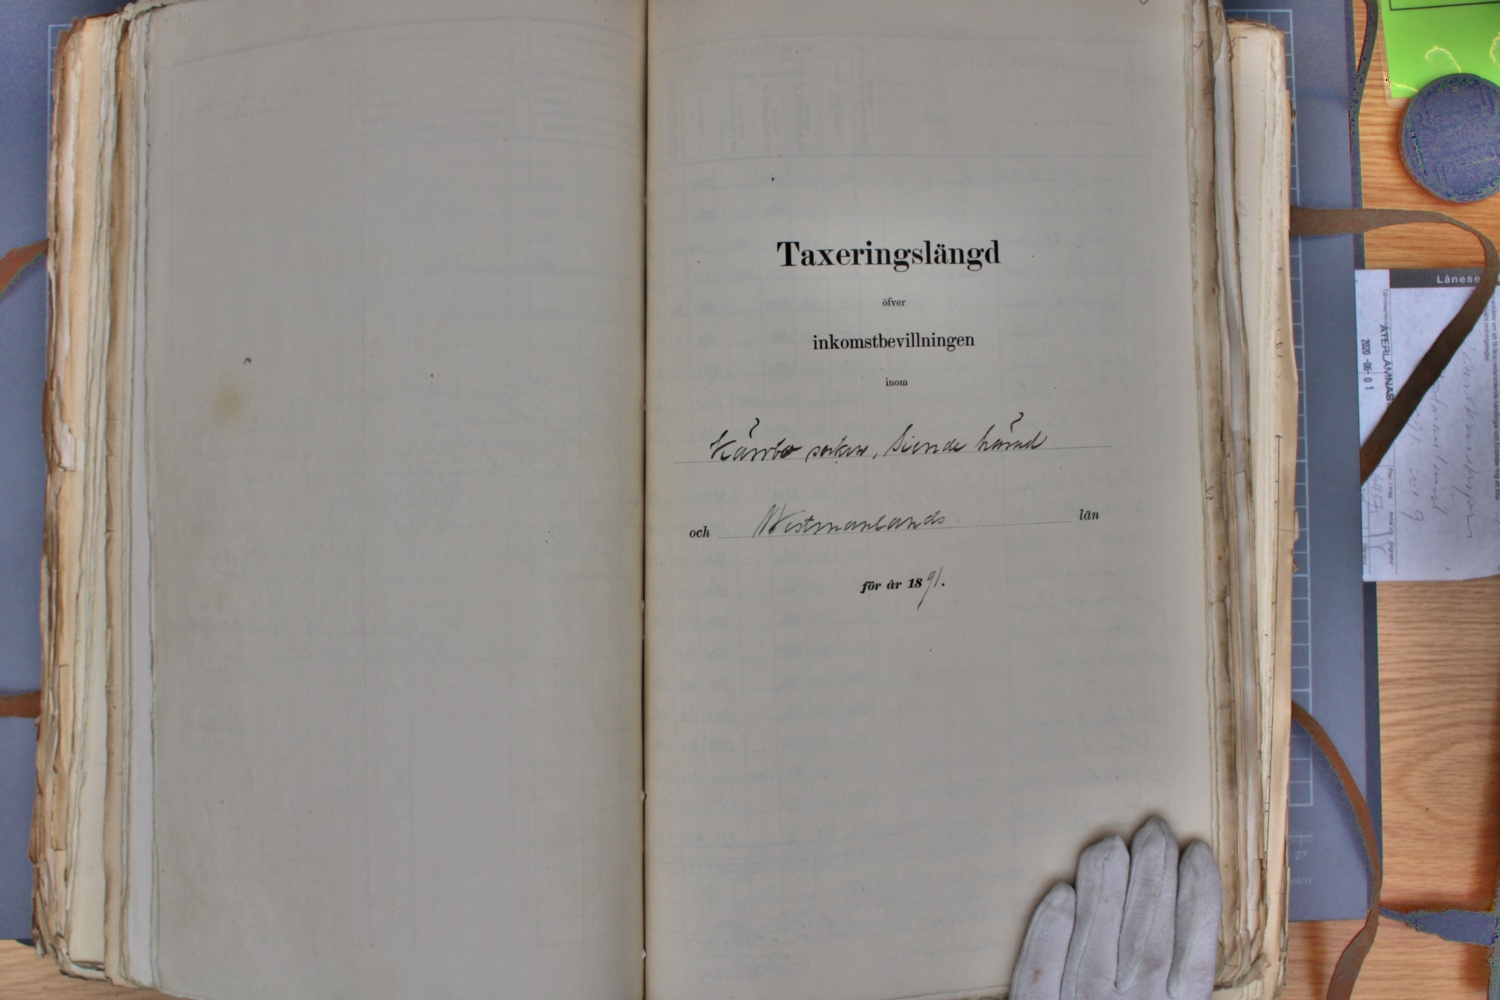 Taxeringslängd
öfver
inkomstbevillningen
inom
Kärrbo socken, Siende härad
och Westmanlands län
för år 1891.
Lånese
ÅTERLÄMNAS
2020-06-01
27